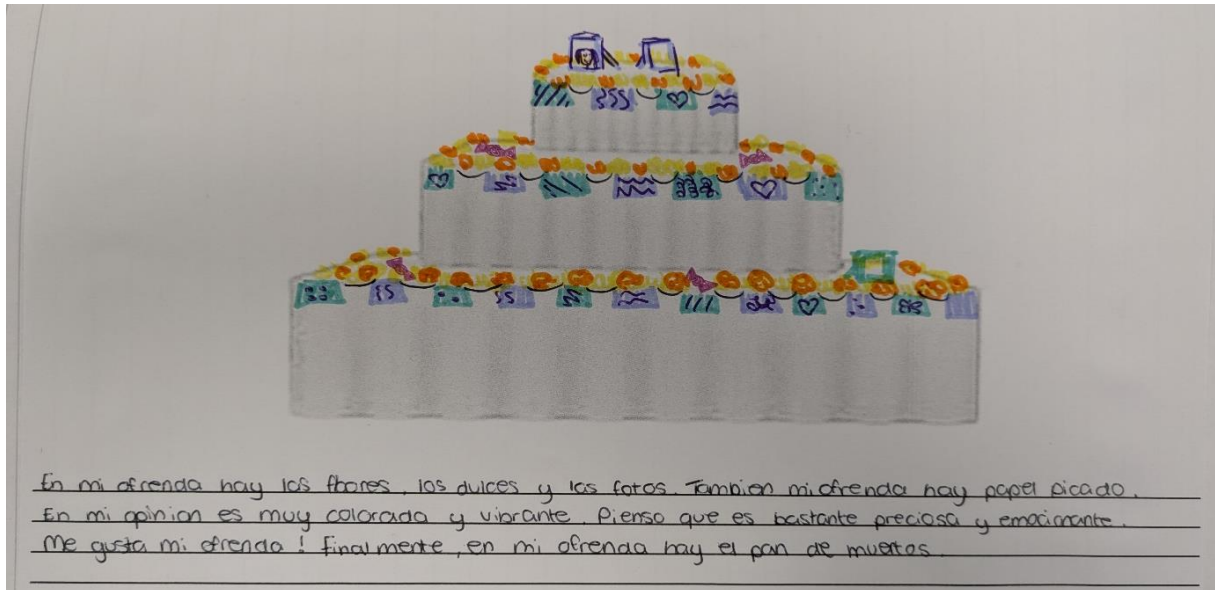 En mi ofrenda hay las flores, los dulces y las fotos. Tambien mi ofrenda hay papel picado.
En mi opinion es muy colorada y vibrante. Pienso que es bastante preciosa y emocionante.
Me gusta mi ofrenda! Finalmente, en mi ofrenda hay el pan de muertos.